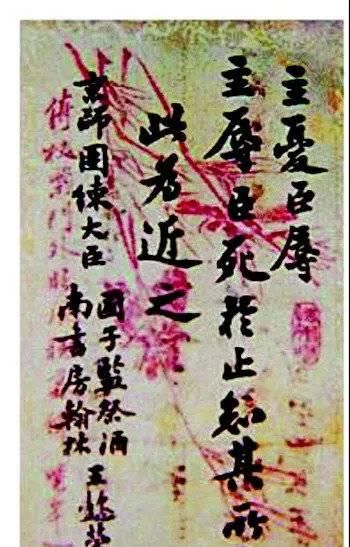 主憂臣辱
主辱臣死於止知其所
此為近之
京師團練大臣
國子監祭酒
南書房翰林
王懿榮